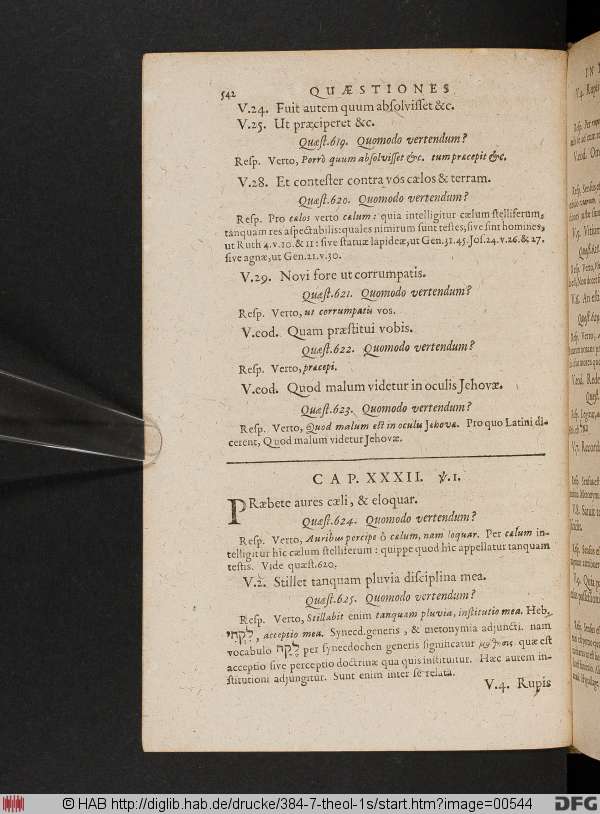 542 QUÆSTIONES
V.24. Fuit autem quum abſolviſſet &c.
V.25. Ut præciperet &c.
Quæſt.619. Quomodo vertendum?
Reſp. Verto, Porrò quum abſolviſſet &c. tum præcepit &c.
V.28. Et conteſter contra vos cælos & terram.
Quæſt.620. Quomodo vertendum?
Reſp. Pro cælos verto cælum: quia intelligitur cælum ſtelliferum,
tanquam res aſpectabilis: quales nimirum ſunt teſtes, ſive ſint homines,
ut Ruth 4.v.10.& 11: ſive ſtatuæ lapideæ, ut Gen.31.45.Joſ.24.v.26.& 27.
ſive agnæ, ut Gen.21.v.30.
V.29. Novi fore ut corrumpatis.
Quæſt.621. Quomodo vertendum?
Reſp. Verto, ut corrumpatis vos.
V.eod. Quam præſtitui vobis.
Quæſt.622. Quomodo vertendum?
Reſp. Verto, præcepi.
V.eod. Quod malum videtur in oculis Jehovæ.
Quæſt.623. Quomodo vertendum?
Reſp. Verto, Quod malum eſt in oculis Jehovæ. Pro quo Latini di-
cerent, Quod malum videtur Jehovæ.
CAP. XXXII. ℣.1.
PRæbete aures cæli, & eloquar.
Quæſt.624. Quomodo vertendum?
Reſp. Verto, Auribus percipe ô cælum, nam loquar. Per cælum in-
telligitur hic cælum ſtelliferum: quippe quod hic appellatur tanquam
teſtis. Vide quæſt.620.
V.2. Stillet tanquam pluvia diſciplina mea.
Quæſt.625. Quomodo vertendum?
Reſp. Verto, Stillabit enim tanquam pluvia, inſtitutio mea. Heb.
לִקְחִי, acceptio mea. Synecd.generis, & metonymia adjuncti. nam
vocabulo לֶקַח per ſynecdochen generis ſignificatur quæ eſt
acceptio ſive perceptio doctrinæ qua quis inſtituitur. Hæc autem in-
ſtitutioni adjungitur. Sunt enim inter ſe relata.
V.4. Rupis
© HAB http://diglib.hab.de/drucke/384-7-theol-1s/start.htm?image=00544
DFG